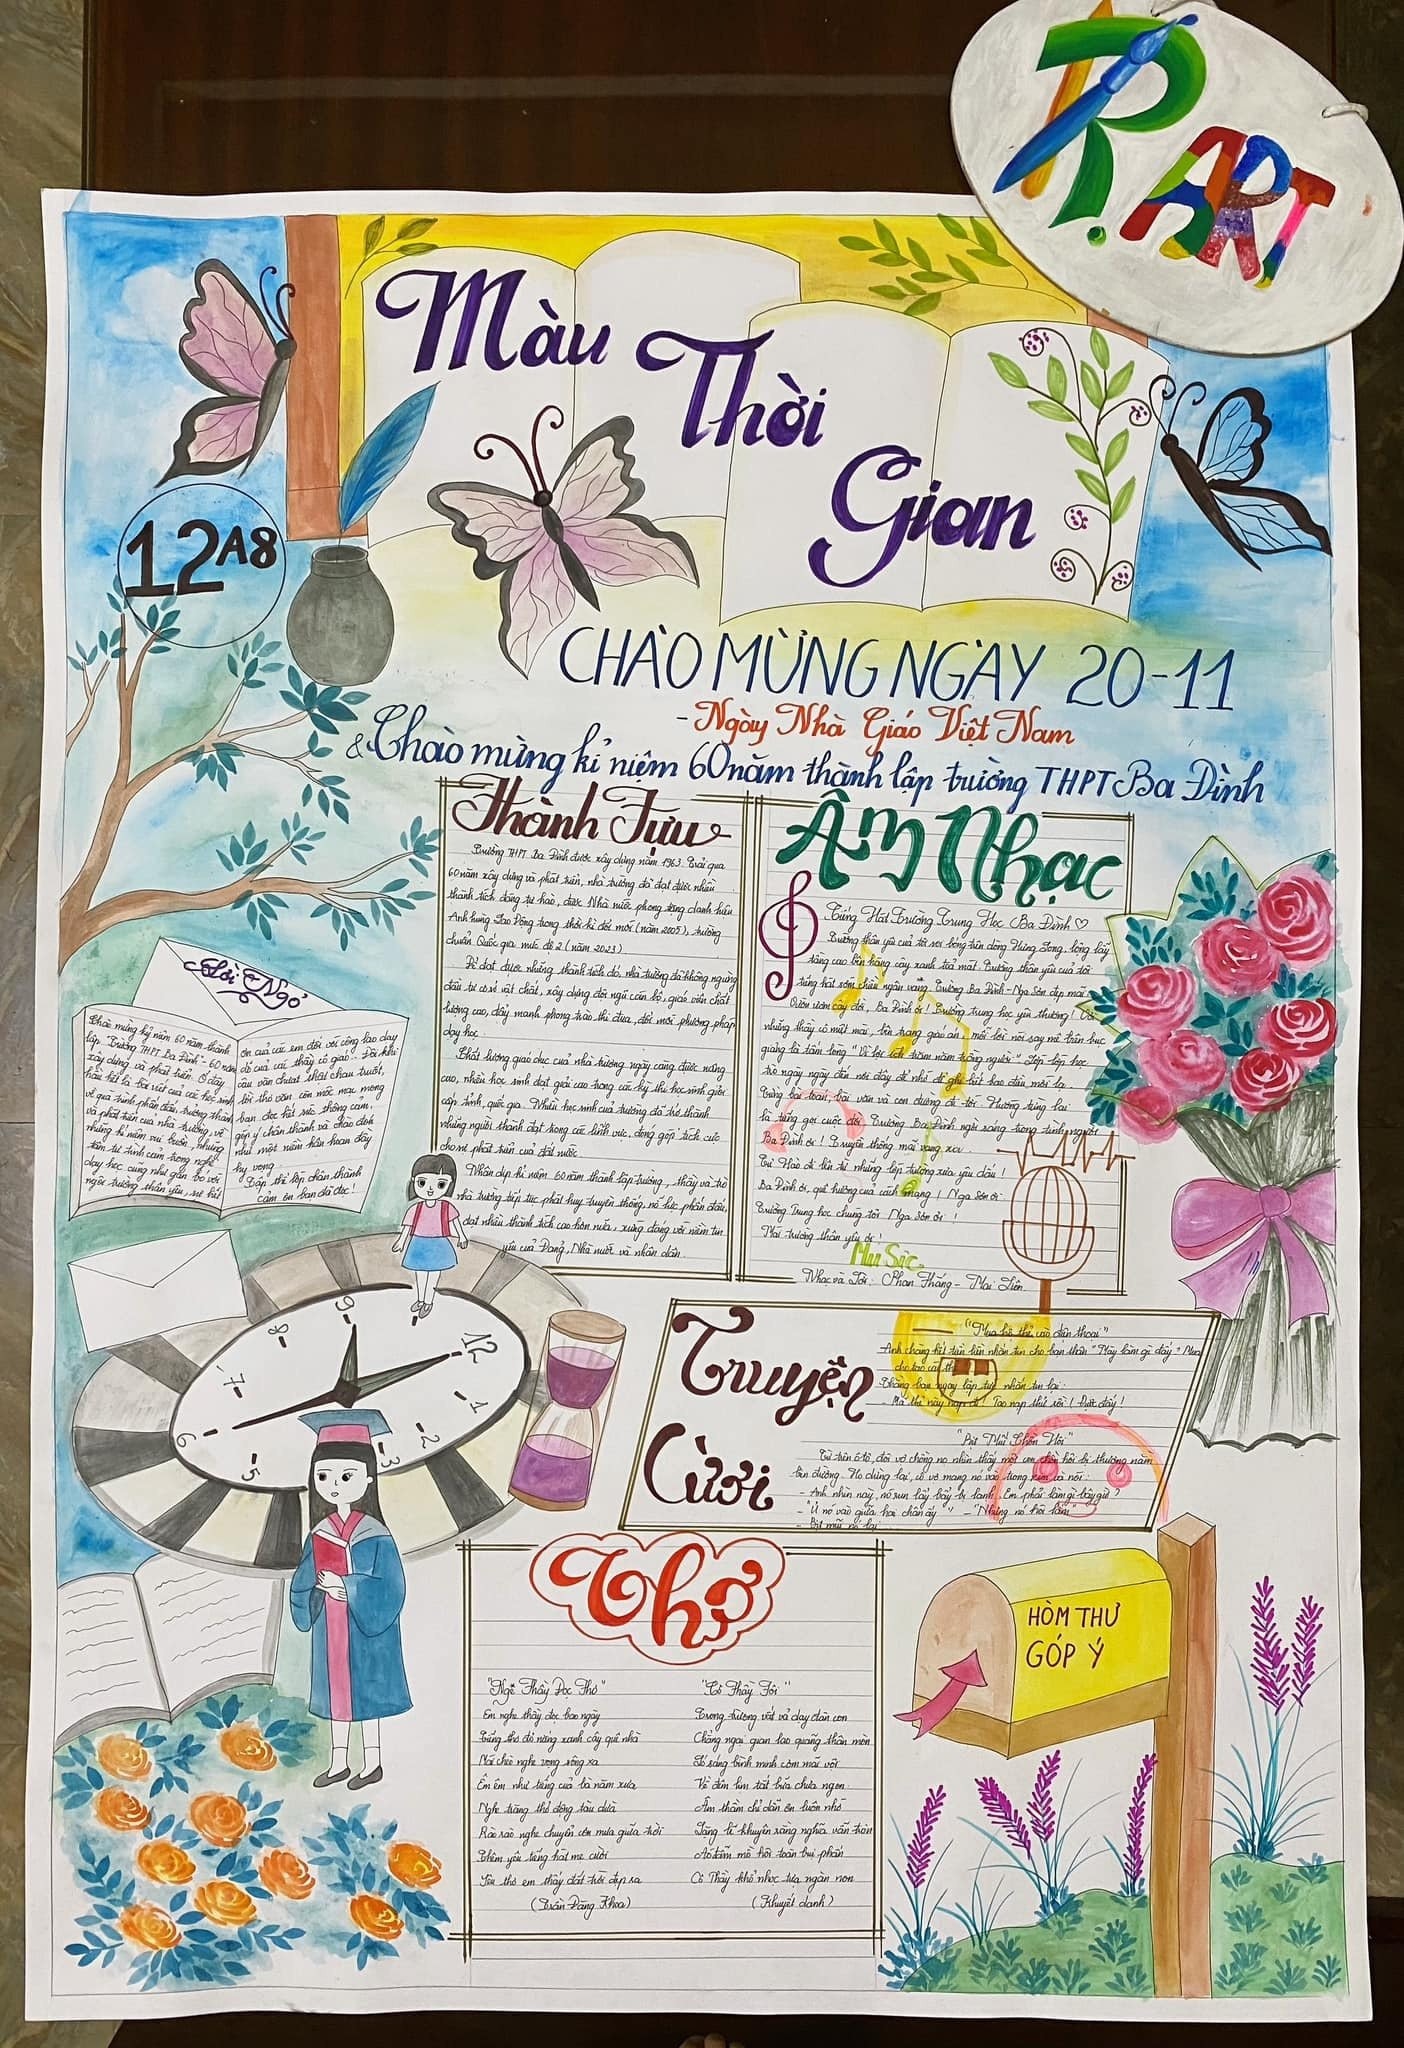 R.ART
Màu
Thời
Gian
12A8
CHÀO MỪNG NGÀY 20-11
- Ngày Nhà Giáo Việt Nam
& Chào mừng kỉ niệm 60 năm thành lập trường THPT Ba Đình
Lời Ngỏ
Chào mừng kỷ niệm 60 năm thành
lập Trường THPT Ba Đình - 60 năm
xây dựng và phát triển. Ở đây
hầu hết là bài viết của các học sinh
về quá trình phấn đấu, trưởng thành
và phát triển của nhà trường, về
những kỉ niệm vui buồn, những
tâm tư tình cảm trong nghề
dạy học cũng như gắn bó với
ngôi trường thân yêu, sự biết
ơn của các em đối với công lao dạy
dỗ của các thầy cô giáo. Đôi khi
câu văn chưa thật chau chuốt,
lời thơ văn còn mộc mạc mong
bạn đọc hết sức thông cảm,
góp ý chân thành và chào đón
như một niềm hân hoan đầy
hy vọng.
Tập thể lớp chân thành
cảm ơn bạn đã đọc!
Thành Tựu
Trường THPT Ba Đình được xây dựng năm 1963. Trải qua
60 năm xây dựng và phát triển, nhà trường đã đạt được nhiều
thành tích đáng tự hào, được Nhà nước phong tặng danh hiệu
Anh hùng Lao Động trong thời kì đổi mới (năm 2005), trường
chuẩn Quốc gia mức độ 2 (năm 2023)
Để đạt được những thành tích đó, nhà trường đã không ngừng
đầu tư cơ sở vật chất, xây dựng đội ngũ cán bộ, giáo viên chất
lượng cao, đẩy mạnh phong trào thi đua, đổi mới phương pháp
dạy học.
Chất lượng giáo dục của nhà trường ngày càng được nâng
cao, nhiều học sinh đạt giải cao trong các kỳ thi học sinh giỏi
cấp tỉnh, quốc gia. Nhiều học sinh của trường đã trở thành
những người thành đạt trong các lĩnh vực, đóng góp tích cực
cho sự phát triển của đất nước.
Nhân dịp kỉ niệm 60 năm thành lập trường, thầy và trò
nhà trường tiếp tục phát huy truyền thống, nỗ lực phấn đấu,
đạt nhiều thành tích cao hơn nữa, xứng đáng với niềm tin
yêu của Đảng, Nhà nước và nhân dân.
Âm Nhạc
Tiếng Hát Trường Trung Học Ba Đình ♡
Trường thân yêu của tôi soi bóng bên dòng Hưng Long, lồng lấy
tầng cao bên hàng cây xanh tỏa mát. Trường thân yêu của tôi
tiếng hát sớm chiều ngân vang. Trường Ba Đình - Nga Sơn đẹp mãi
Ươm cây đời, Ba Đình ơi! Trường trung học yêu thương!
những thầy cô miệt mài, bên trang giáo án, mỗi lời nói say mê trên bục
giảng là tấm lòng "Vì lợi ích trăm năm trồng người". Lớp lớp học
trò ngày ngày đến nơi đây để nhớ để ghi biết bao điều mới lạ.
Từng bài toán, bài văn và con đường đi tới. Hướng tương lai
là tiếng gọi cuộc đời. Trường Ba Đình ngời sáng trong tình người
Ba Đình ơi! Truyền thống mãi vang xa.
Tự Hào đi lên từ những lớp trường xưa yêu dấu!
Ba Đình ơi, quê hương của cách mạng! Nga Sơn ơi
Trường Trung học chúng tôi Nga Sơn ơi!
Mái trường thân yêu ơi!
MuSic
Nhạc và Lời: Phan Thắng - Mai Liên
9
12
8
7
1
6
2
5
3
Truyện
Cười
"Mua hộ thẻ cào điện thoại"
Anh chàng hết tiền liền nhắn tin cho bạn thân "Mày làm gì đấy? Mua
cho tao cái thẻ
Thằng bạn ngay lập tức nhắn tin lại:
- Mã thẻ này nạp đi! Tao nạp thử rồi! Được đấy!
"Bịt Mũi Chồn Hôi"
Từ trên ô tô, đôi vợ chồng nọ nhìn thấy một con chồn hôi bị thương nằm
bên đường. Họ dừng lại, cô vợ mang nó vào trong xe và nói:
- Anh nhìn này, nó run lẩy bẩy vì lạnh. Em phải làm gì bây giờ?
- "Ủ nó vào giữa hai chân ấy" - "Nhưng nó hôi lắm"
- Bịt mũi nó lại
Thơ
"Nghe Thầy Đọc Thơ"
Em nghe thầy đọc bao ngày
Tiếng thơ đỏ nắng xanh cây quê nhà
Mái chèo nghe vọng sông xa
Êm êm như tiếng của bà năm xưa
Nghe trăng thở động tàu dừa
Rào rào nghe chuyển cơn mưa giữa trời
Thêm yêu tiếng hát mẹ cười
Yêu thơ em thấy đất trời đẹp ra
(Trần Đăng Khoa)
"Cô Thầy Tôi"
Trong trường vất vả dạy đàn con
Chẳng ngại gian lao quãng thân mòn
Từ sáng bình minh còn mải vội
Về đêm lim tắt bữa chưa ngon
Âm thầm chỉ dẫn ơn luôn nhớ
Lẳng lẽ khuyên răng nghĩa vẫn tròn
Áo đẫm mồ hôi toàn bụi phấn
Cô Thầy khổ nhọc tựa ngàn non
(Khuyết danh)
HÒM THƯ
GÓP Ý